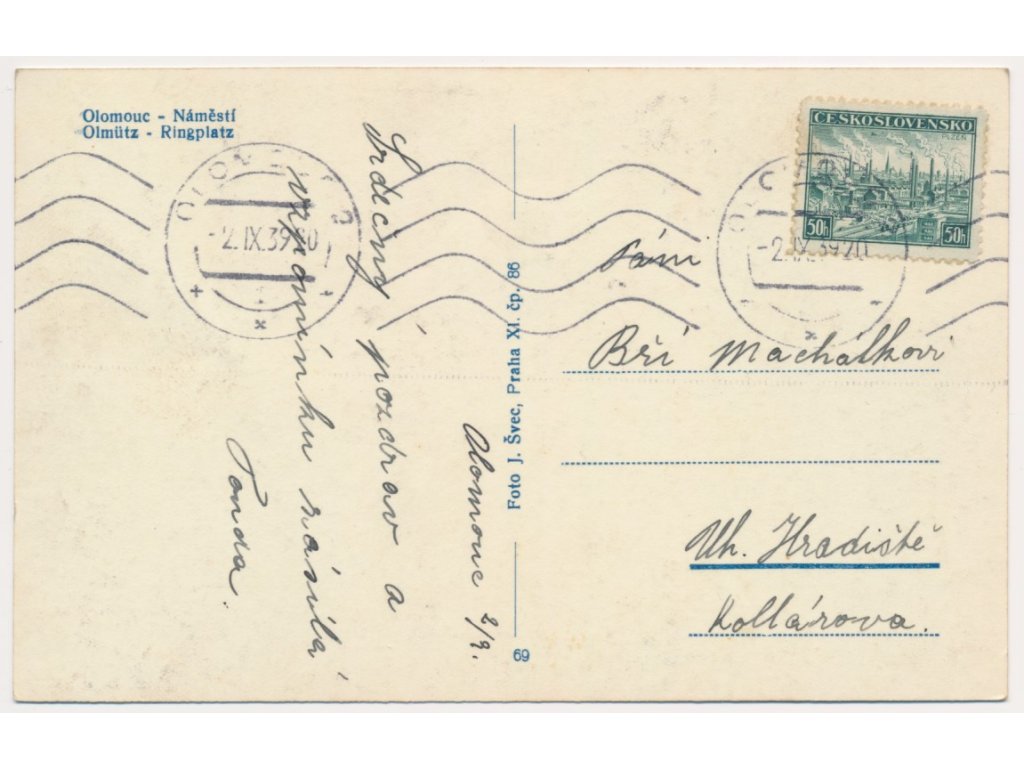 Olomouc - Náměstí
Olmütz - Ringplatz
Srdečný pozdrav a
vzpomínku zasílá
Tonda.
Olomouc 2/9.
Foto J. Švec, Praha XI. čp. 86
69
ČESKOSLOVENSKO
PLZEŇ
50h 50h
-2.IX.39 20
-2.IX.39 20
Páni
Bří Machálkovi
Uh. Hradiště
Kollárova.